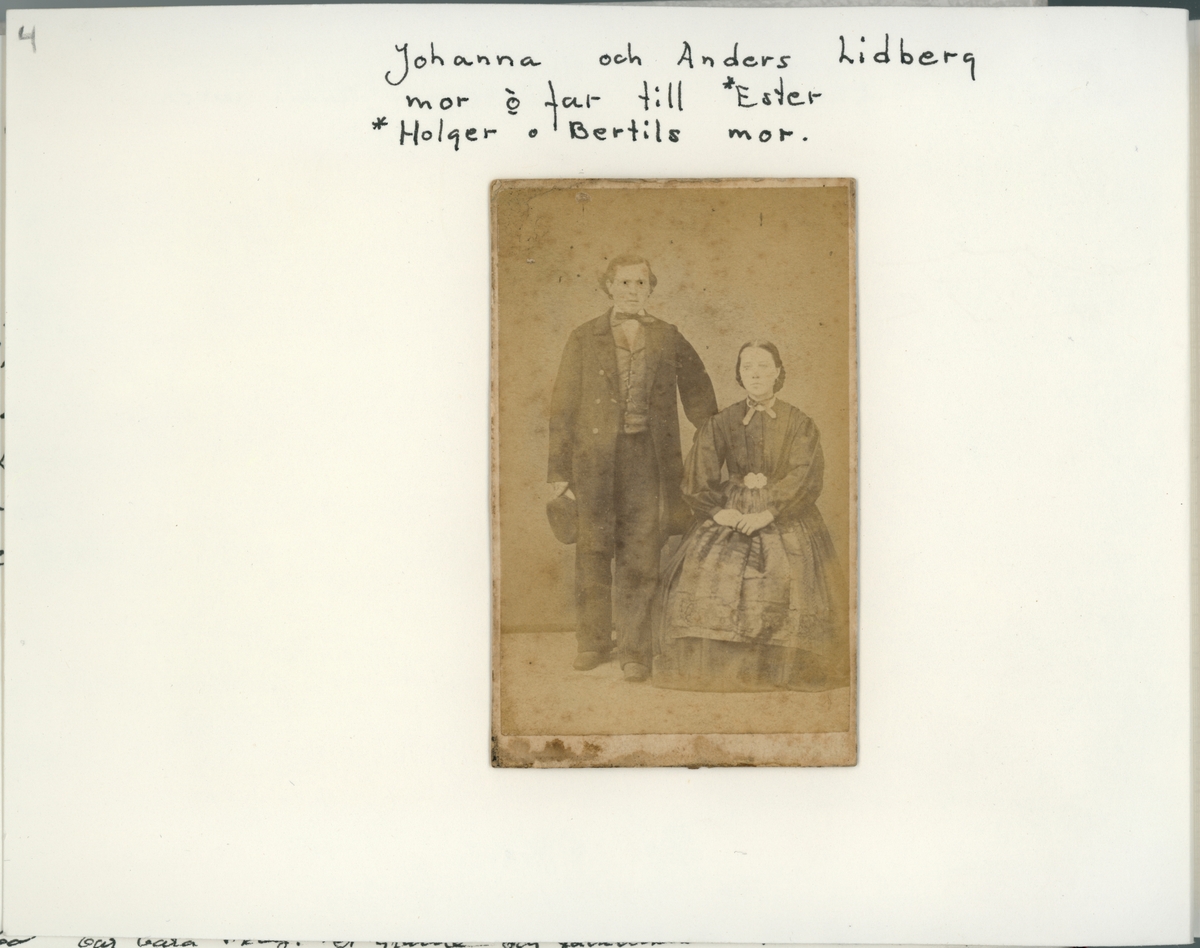 4
Johanna och Anders Lidberg
mor o far till *Ester
*Holger o Bertils mor.